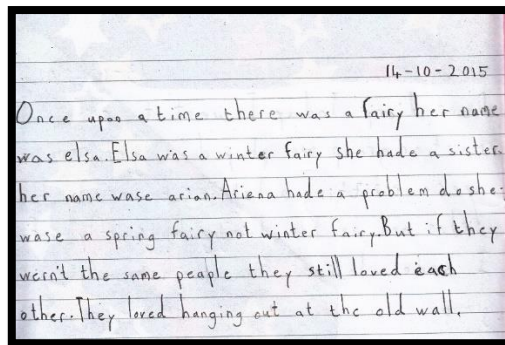 14-10-2015
Once upon a time there was a fairy her name
was elsa. Elsa was a winter fairy she hade a sister.
her name wase arian. Ariena hade a problem do she.
wase a spring fairy not winter fairy. But if they
wern't the same peaple they still loved each
other. They loved hanging out at the old wall.